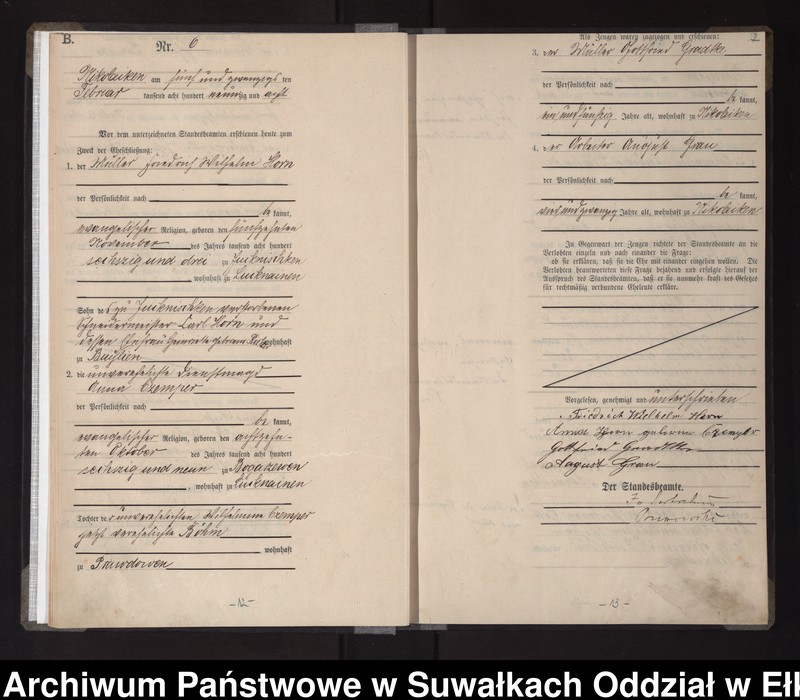 B.
Nr. 6
Nikolaiken am fünf und zwanzigs ten
Februar tausend acht hundert neunzig und acht
Vor dem unterzeichneten Standesbeamten erschienen heute zum
Zweck der Eheschließung:
1. der Müller Friedrich Wilhelm Horn
der Persönlichkeit nach
be kannt,
evangelischer Religion, geboren den fünfzehnten
November des Jahres tausend acht hundert
sechszig und drei zu
, wohnhaft zu Lucknainen
Sohn de s zu verstorbenen
Schneidermeister Carl Horn und
dessen Ehefrau Henriette geborene wohnhaft
zu
2. die unverehelichte Dienstmagd
Anna Czemper
der Persönlichkeit nach
be kannt,
evangelischer Religion, geboren den achtzehn-
ten Oktober des Jahres tausend acht hundert
sechszig und neun zu
, wohnhaft zu Lucknainen
Tochter de r unverehelichten Wilhelmine Czemper
jetzt verehelichte Böhm
wohnhaft
zu Prawdowen
-12-
2
Als Zeugen waren zugezogen und erschienen:
3. der Müller Gottfried Gradtke
der Persönlichkeit nach
be kannt,
ein und fünfzig Jahre alt, wohnhaft zu Nikolaiken
4. der Arbeiter August Grau
der Persönlichkeit nach
be kannt,
vier und zwanzig Jahre alt, wohnhaft zu Nikolaiken
In Gegenwart der Zeugen richtete der Standesbeamte an die
Verlobten einzeln und nach einander die Frage:
ob sie erklären, daß sie die Ehe mit einander eingehen wollen. Die
Verlobten beantworteten diese Frage bejahend und erfolgte hierauf der
Ausspruch des Standesbeamten, daß er sie nunmehr kraft des Gesetzes
für rechtmäßig verbundene Eheleute erkläre.
Vorgelesen, genehmigt und unterschrieben
Friedrich Wilhelm Horn
Anna Horn geborene Czemper
Gottfried Gradtke
August Grau
Der Standesbeamte.
In Vertretung
-13-
Archiwum Państwowe w Suwałkach Oddział w Eł